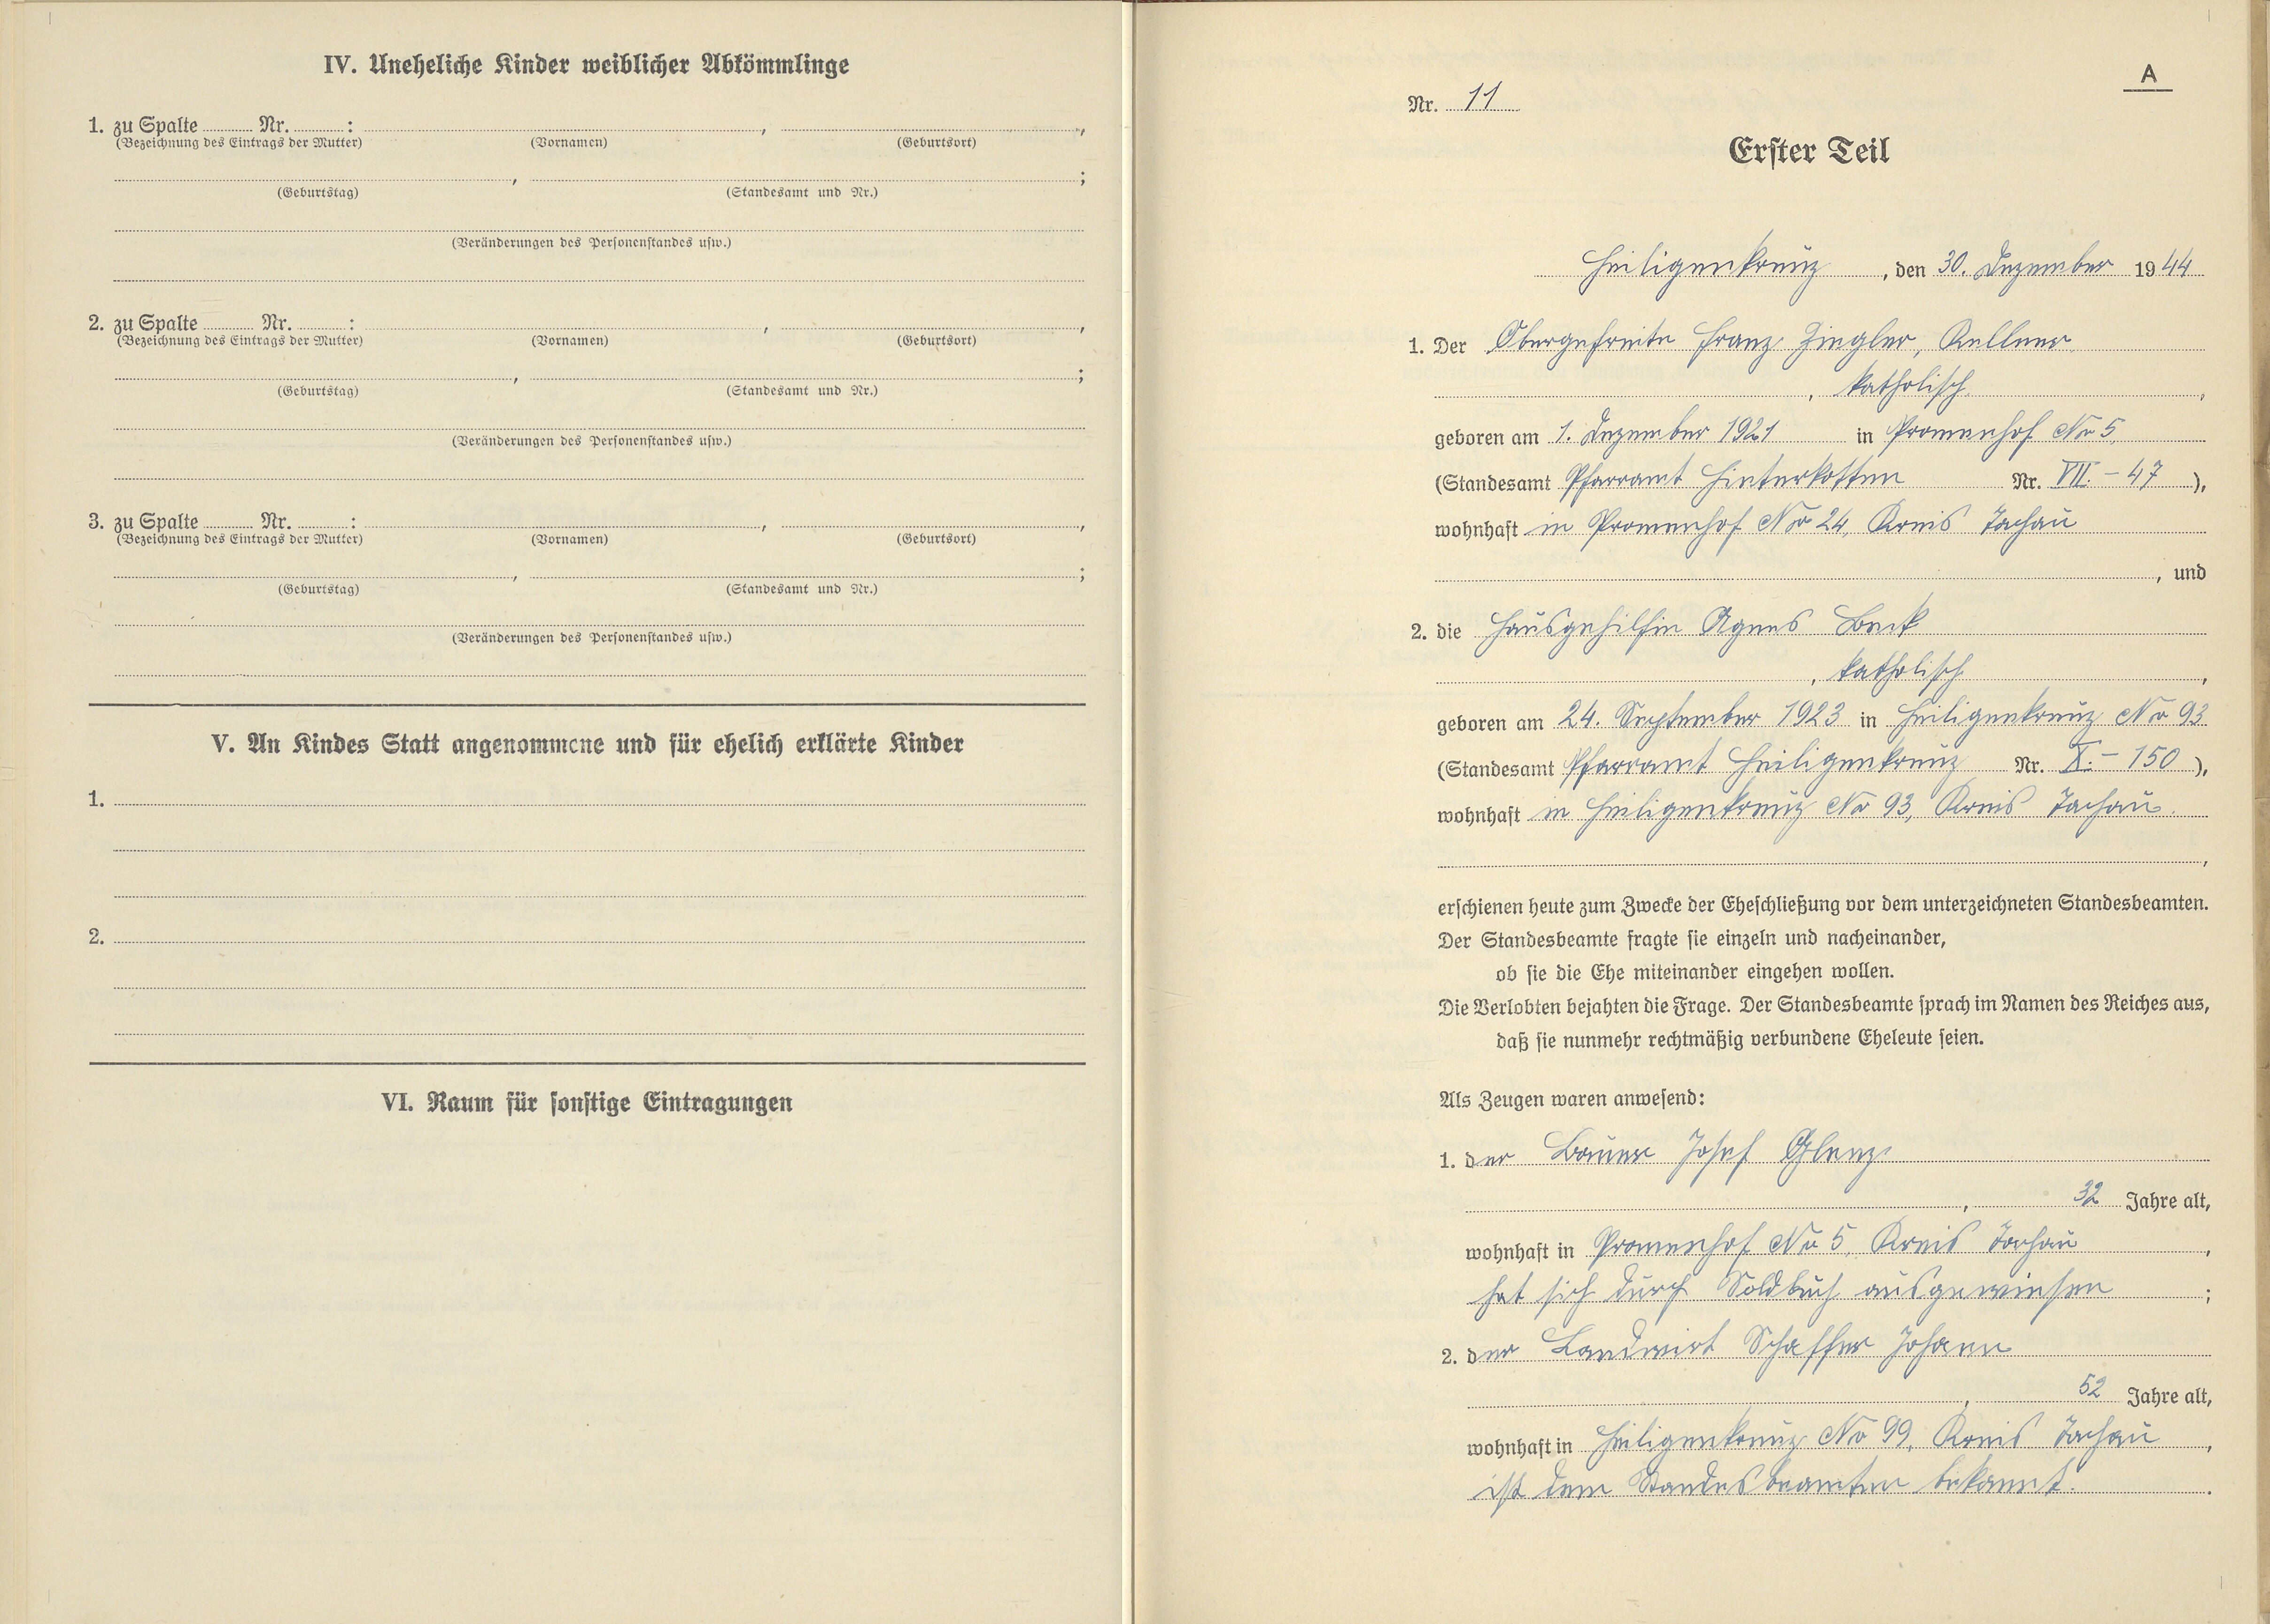 IV. Uneheliche Kinder weiblicher Abkömmlinge
1. zu Spalte ........ Nr. ........ : ........, ........,
(Bezeichnung des Eintrags der Mutter) (Vornamen) (Geburtsort)
........, ........;
(Geburtstag) (Standesamt und Nr.)
(Veränderungen des Personenstandes usw.)
2. zu Spalte ........ Nr. ........ : ........, ........,
(Bezeichnung des Eintrags der Mutter) (Vornamen) (Geburtsort)
........, ........;
(Geburtstag) (Standesamt und Nr.)
(Veränderungen des Personenstandes usw.)
3. zu Spalte ........ Nr. ........ : ........, ........,
(Bezeichnung des Eintrags der Mutter) (Vornamen) (Geburtsort)
........, ........;
(Geburtstag) (Standesamt und Nr.)
(Veränderungen des Personenstandes usw.)
V. An Kindes Statt angenommene und für ehelich erklärte Kinder
1.
2.
VI. Raum für sonstige Eintragungen
A
Nr. 11
Erster Teil
Heiligenkreuz, den 30. Dezember 1944
1. Der Obergefreite Franz Ziegler, Kellner
, katholisch,
geboren am 1. Dezember 1921 in Promenhof No 5
(Standesamt Pfarramt Hinterkotten Nr. VII. – 47),
wohnhaft in Promenhof No 24, Kreis Tachau
, und
2. die Hausgehilfin Agnes Beck
, katholisch,
geboren am 24. September 1923 in Heiligenkreuz No 93
(Standesamt Pfarramt Heiligenkreuz Nr. X. – 150),
wohnhaft in Heiligenkreuz No 93, Kreis Tachau.
,
erschienen heute zum Zwecke der Eheschließung vor dem unterzeichneten Standesbeamten.
Der Standesbeamte fragte sie einzeln und nacheinander,
ob sie die Ehe miteinander eingehen wollen.
Die Verlobten bejahten die Frage. Der Standesbeamte sprach im Namen des Reiches aus,
daß sie nunmehr rechtmäßig verbundene Eheleute seien.
Als Zeugen waren anwesend:
1. der Bauer Josef Glenz
, 32 Jahre alt,
wohnhaft in Promenhof No 5, Kreis Tachau,
hat sich durch Soldbuch ausgewiesen;
2. der Landwirt Schaffer Johann
, 52 Jahre alt,
wohnhaft in Heiligenkreuz No 99, Kreis Tachau,
ist dem Standesbeamten bekannt.